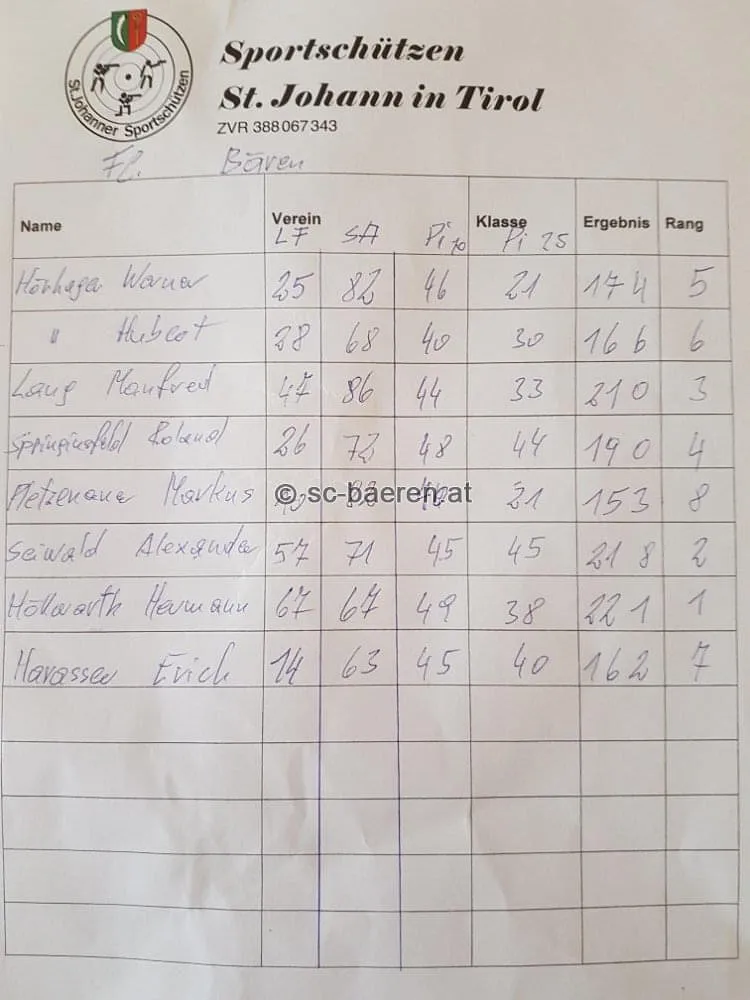 St. Johanner Sportschützen
Sportschützen
St. Johann in Tirol
ZVR 388067343
Bären
Name Verein Klasse Ergebnis Rang
LF SA Pi 10 Pi 25
Werner 25 82 46 21 174 5
" Hubert 28 68 40 30 166 6
Lang Manfred 47 86 44 33 210 3
Springinsfeld Roland 26 72 48 44 190 4
Markus 21 153 8
© sc-baeren.at
Seiwald Alexander 57 71 45 45 218 2
Höllwarth Hermann 67 67 49 38 221 1
Harasser Erich 14 63 45 40 162 7